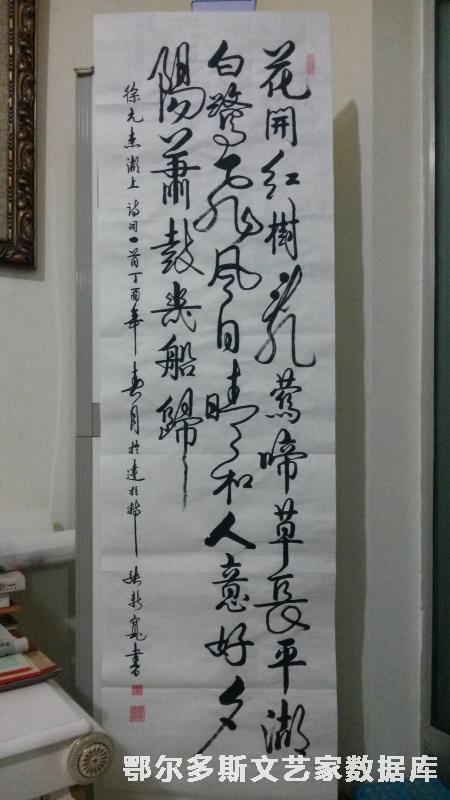 花開紅樹亂鶯啼草長平湖
白鷺飛風日晴和人意好夕
陽蕭鼓幾船歸
徐元杰湖上詩词一首丁酉年春月於達拉特張新寬書
鄂尔多斯文艺家数据库